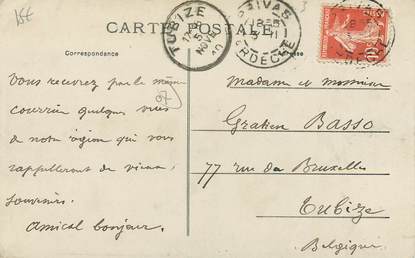 15€
CARTE POSTALE
Correspondance
TUBIZE
PRIVAS
ARDECHE
Vous recevrez par le même
courrier quelques vues
de notre région qui vous
rappelleront de vieux
souvenirs.
Amical bonjour.
Madame et monsieur
Gratien Basso
77 rue de Bruxelles
Tubize
Belgique